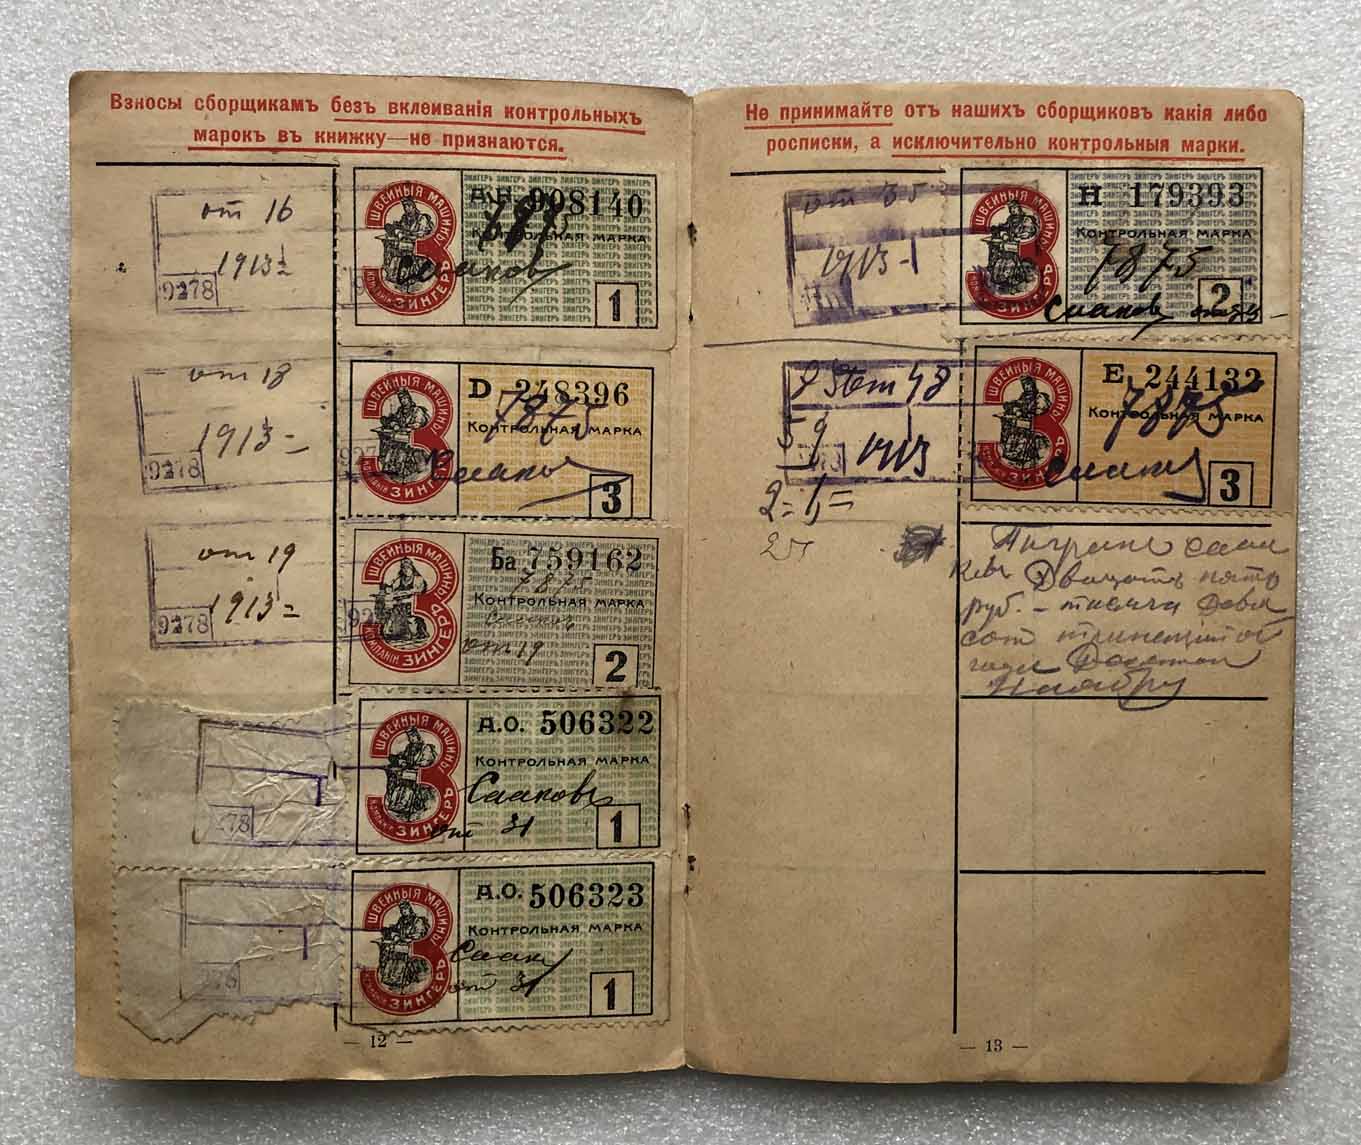 Взносы сборщикамъ безъ вклеиванія контрольныхъ
марокъ въ книжку—не признаются.
от 16
1913
9278
ШВЕЙНЫЯ МАШИНЫ
КОМПАНІИ ЗИНГЕРЪ
А.Н. 908140
КОНТРОЛЬНАЯ МАРКА
7875
1
от 18
1913
9278
ШВЕЙНЫЯ МАШИНЫ
КОМПАНІИ ЗИНГЕРЪ
D 248396
КОНТРОЛЬНАЯ МАРКА
7875
3
от 19
1913
9278
ШВЕЙНЫЯ МАШИНЫ
КОМПАНІИ ЗИНГЕРЪ
Ба 759162
7875
КОНТРОЛЬНАЯ МАРКА
от 19
2
278
ШВЕЙНЫЯ МАШИНЫ
КОМПАНІИ ЗИНГЕРЪ
А.О. 506322
КОНТРОЛЬНАЯ МАРКА
Сааковъ
от 31
1
ШВЕЙНЫЯ МАШИНЫ
КОМПАНІИ ЗИНГЕРЪ
А.О. 506323
КОНТРОЛЬНАЯ МАРКА
Сааков
от 31
1
— 12 —
Не принимайте отъ нашихъ сборщиковъ какія либо
росписки, а исключительно контрольныя марки.
от 35
1913
ШВЕЙНЫЯ МАШИНЫ
КОМПАНІИ ЗИНГЕРЪ
Н 179393
КОНТРОЛЬНАЯ МАРКА
7875
2
от 48
1913
ШВЕЙНЫЯ МАШИНЫ
КОМПАНІИ ЗИНГЕРЪ
Е 244132
КОНТРОЛЬНАЯ МАРКА
7875
3
25
Двацать пять
руб. – тисяча Девя
сот
года
Ноябру
— 13 —